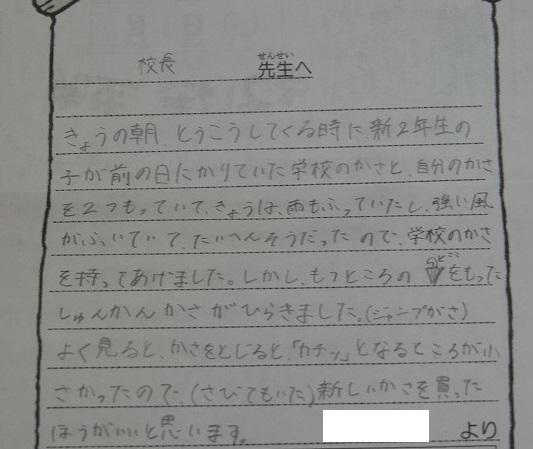 校長 先生へ
せんせい
きょうの朝、とうこうしてくる時に、新2年生の
子が前の日にかりていた学校のかさと、自分のかさ
を2つもっていて、きょうは、雨もふっていたし、強い風
がふいていて、たいへんそうだったので、学校のかさ
を持ってあげました。しかし、もつところの をもった
しゅんかんかさがひらきました。(ジャンプがさ)
よく見ると、かさをとじると、「カチッ」となるところが小
さかったので、(さびてもいた)新しいかさを買った
ほうがいいと思います。
より